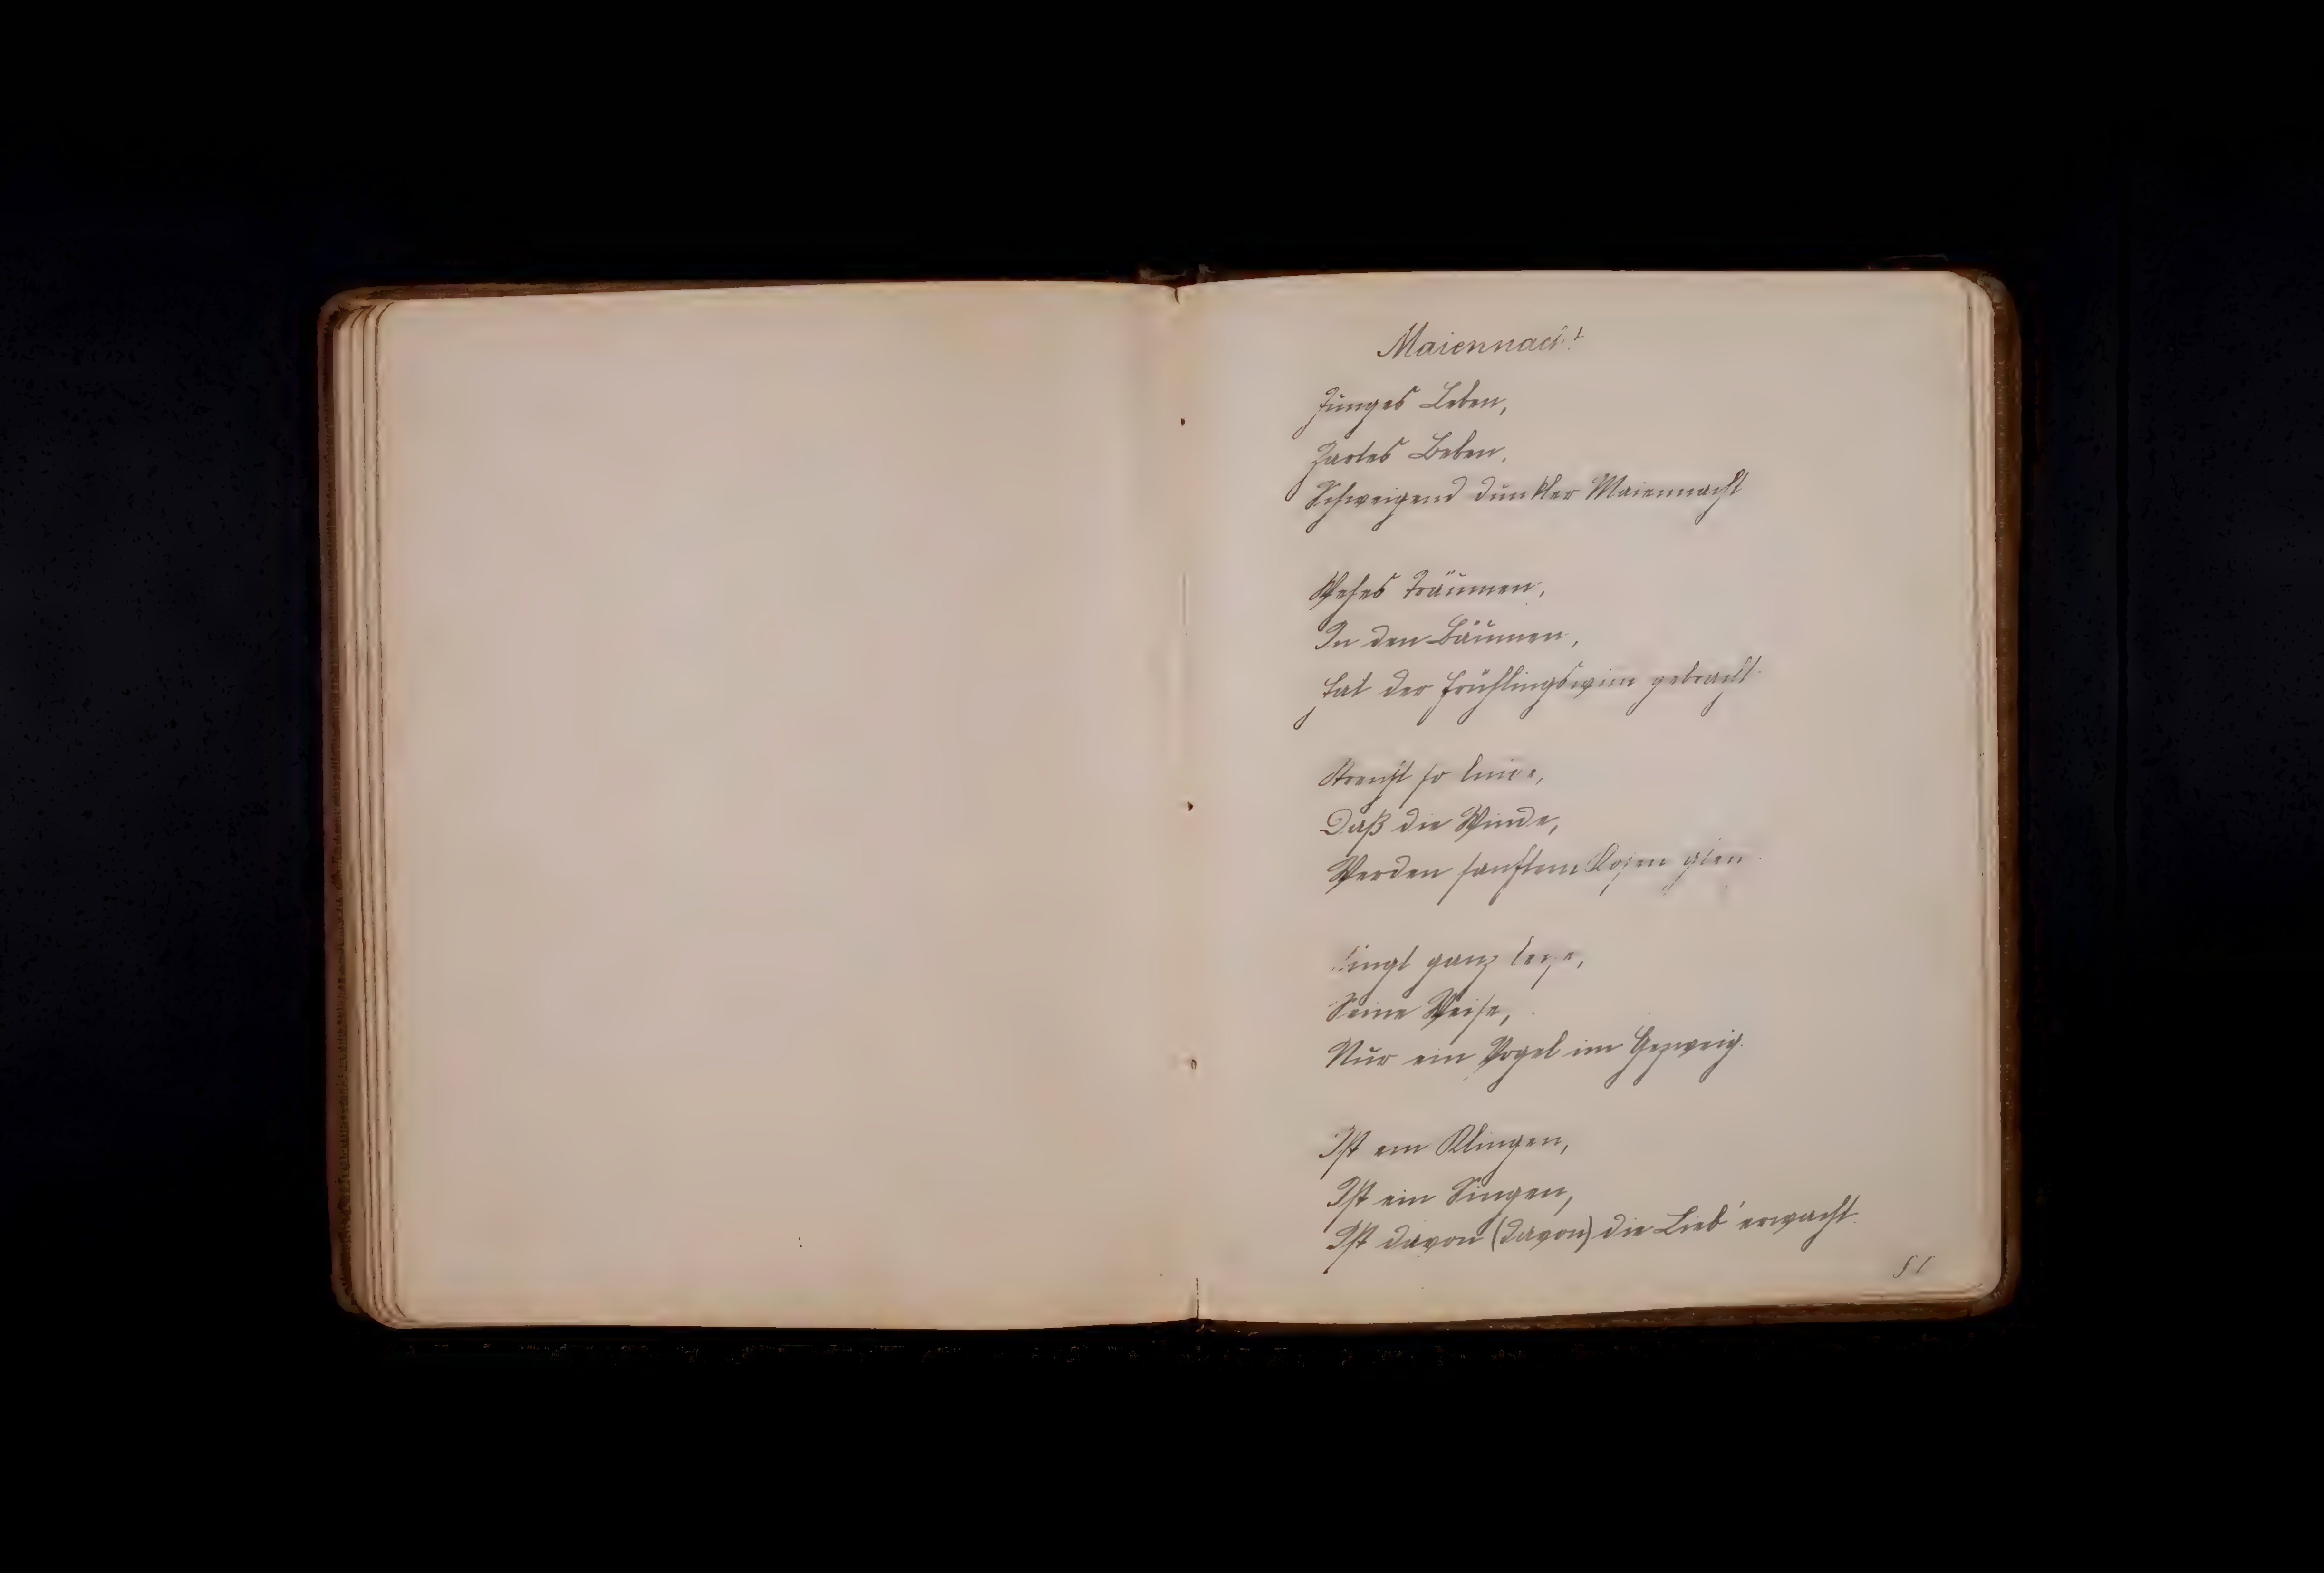 Maiennacht
Junges Leben,
Zartes Beben.
Schweigend dunkler Maiennacht
Wehes Träumen,
In den Bäumen,
Hat der Frühlingswind gebracht.
so linde,
Daß die Winde,
Werden sanftem Kosen gleich.
Singt ganz leise,
Seine Weise,
Nur ein Vogel im Gezweig.
Ist ein Klingen,
Ist ein Singen,
Ist davon (davon) die Lieb' erwacht.
51